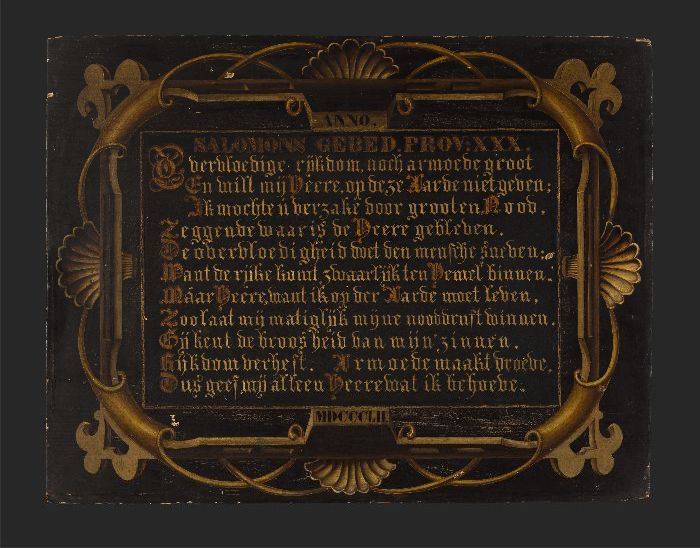 ANNO.
SALOMONS GEBED, PROV: XXX.
Overvloedige rijkdom, noch armoede groot
En will mij Heere, op deze Aarde niet geven;
Ik mochte u verzakē door grooten Nood,
Zeggende waar is de Heere gebleven.
De overvloedigheid doet den mensche sneven:
Want de rijke komt zwaarlijk ten Hemel binnen.
Máar Heere, want ik op der Aarde moet leven,
Zoo laat mij matiglijk mijne nooddruft winnen.
Gij kent de broosheid van mijn zinnen.
Rijkdom verheft. Armoede maakt droeve,
Dus geef mij alleen Heere wat ik behoeve.
MDCCCLII